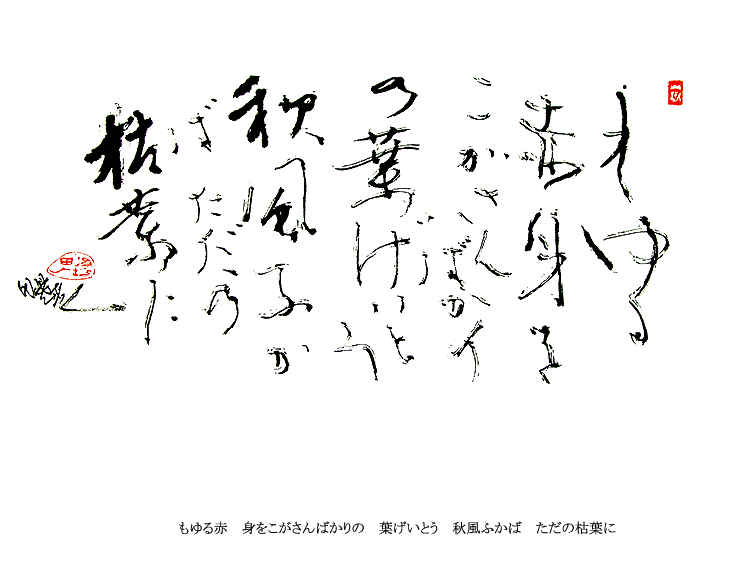 もゆる
赤身を
こがさんばかり
の葉げいとう
秋風ふか
ばただの
枯葉に
もゆる赤　身をこがさんばかりの　葉げいとう　秋風ふかば　ただの枯葉に